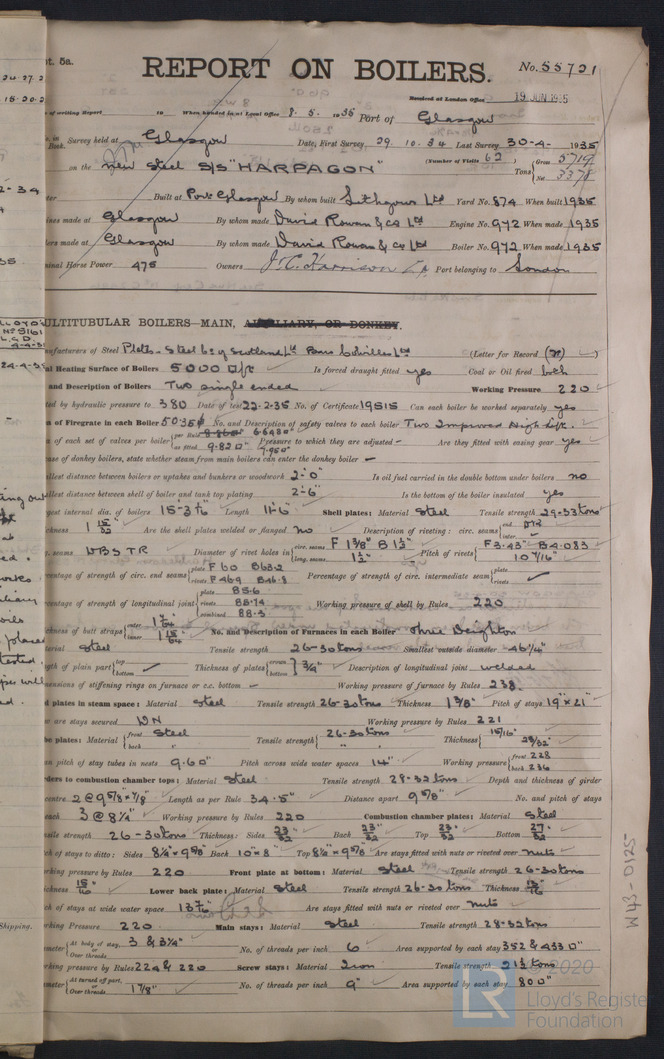 pt. 5a.
REPORT ON BOILERS.
No. 55721
Received at London Office 19 JUN 1935
of writing Report to When handed in at Local Office 8. 5. 1935 Port of Glasgow
Survey held at Glasgow Date, First Survey 29. 10. 34 Last Survey 30-4- 1935
on the New Steel S/S "HARPAGON" (Number of Visits 62) Tons Gross 5719 Net 3378
Built at Port Glasgow By whom built Lithgows Ltd Yard No. 874 When built 1935
ines made at Glasgow By whom made David Rowan & Co Ltd Engine No. 972 When made 1935
lers made at Glasgow By whom made David Rowan & Co Ltd Boiler No. 972 When made 1935
minal Horse Power 475 Owners J. & C. Harrison Ld Port belonging to London
ULTITUBULAR BOILERS—MAIN, AUXILIARY, OR DONKEY.
nufacturers of Steel Plates - Steel Co of Scotland Ld (Letter for Record )
al Heating Surface of Boilers 5000 Is forced draught fitted yes Coal or Oil fired both
and Description of Boilers Two single ended Working Pressure 220
ted by hydraulic pressure to 380 Date of test 22-2-35 No. of Certificate 19515 Can each boiler be worked separately yes
a of Firegrate in each Boiler 50.35 No. and Description of safety valves to each boiler Two Improved High Lift.
a of each set of valves per boiler per Rule as fitted 9.820 Pressure to which they are adjusted - Are they fitted with easing gear yes
ase of donkey boilers, state whether steam from main boilers can enter the donkey boiler —
allest distance between boilers or uptakes and bunkers or woodwork 2'-0" Is oil fuel carried in the double bottom under boilers no
allest distance between shell of boiler and tank top plating 2'-6" Is the bottom of the boiler insulated yes
gest internal dia. of boilers Length 11'-6" Shell plates: Material Steel Tensile strength 29-33 tons
ickness 1 15/32 Are the shell plates welded or flanged no Description of riveting: circ. seams end DR inter.
g. seams DBS TR Diameter of rivet holes in circ. seams F 1 3/8" B 1 1/2" long. seams 1 1/2" Pitch of rivets F 3.43" B 4.083 10 7/16"
rcentage of strength of circ. end seams plate F 60 B 63.2 rivets F 46.9 B 46.8 Percentage of strength of circ. intermediate seam plate rivets
rcentage of strength of longitudinal joint plate 85.6 rivets 85.74 combined 88.3 Working pressure of shell by Rules 220
ickness of butt straps outer 1 9/64 inner 1 15/64 No. and Description of Furnaces in each Boiler Three Deighton
terial Steel Tensile strength 26-30 tons Smallest outside diameter 46 1/4"
gth of plain part top bottom Thickness of plates crown bottom 3/4" Description of longitudinal joint welded
mensions of stiffening rings on furnace or c.c. bottom — Working pressure of furnace by Rules 238.
d plates in steam space: Material Steel Tensile strength 26-30 tons Thickness 1 3/8" Pitch of stays 19" x 21"
w are stays secured DN Working pressure by Rules 221
be plates: Material front Steel back " Tensile strength 26-30 tons " Thickness 15/16" 29/32"
an pitch of stay tubes in nests 9.60" Pitch across wide water spaces 14" Working pressure front 228 back 236
rders to combustion chamber tops: Material Steel Tensile strength 28-32 tons Depth and thickness of girder
centre 2 @ 9 5/8" x 7/8" Length as per Rule 34.5" Distance apart 9 5/8" No. and pitch of stays
each 3 @ 8 1/4" Working pressure by Rules 220 Combustion chamber plates: Material Steel
nsile strength 26-30 tons Thickness: Sides 23/32 Back 23/32 Top 23/32 Bottom 27/32
ch of stays to ditto: Sides 8 1/4" x 9 5/8 Back 10" x 8 Top 8 1/4" x 9 5/8 Are stays fitted with nuts or riveted over nuts
rking pressure by Rules 220 Front plate at bottom: Material Steel Tensile strength 26-30 tons
ickness 15/16 Lower back plate: Material Steel Tensile strength 26-30 tons Thickness 13/16
ch of stays at wide water space 13 7/8 Are stays fitted with nuts or riveted over nuts
rking Pressure 220 Main stays: Material Steel Tensile strength 28-32 tons
meter At body of stay, or Over threads 3 & 3 3/4" No. of threads per inch 6 Area supported by each stay 352 & 433
rking pressure by Rules 224 & 220 Screw stays: Material Iron Tensile strength 21 1/2 tons
meter At turned off part, or Over threads 1 7/8" No. of threads per inch 9 Area supported by each stay 80
W43-0125-
©2020
LR
Lloyd's Register
Foundation